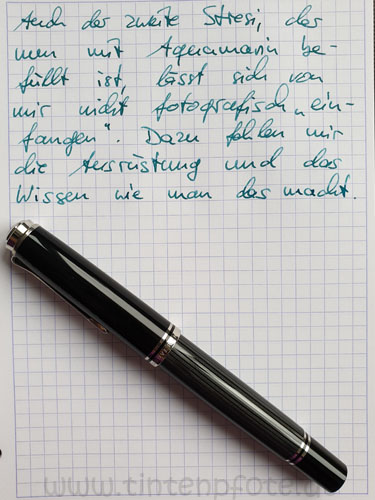 Auch der zweite Stresi, der
nun mit Aquamarin be-
füllt ist, lässt sich von
mir nicht fotografisch „ein-
fangen“. Dazu fehlen mir
die Ausrüstung und das
Wissen wie man das macht.
www.tintenpfote.